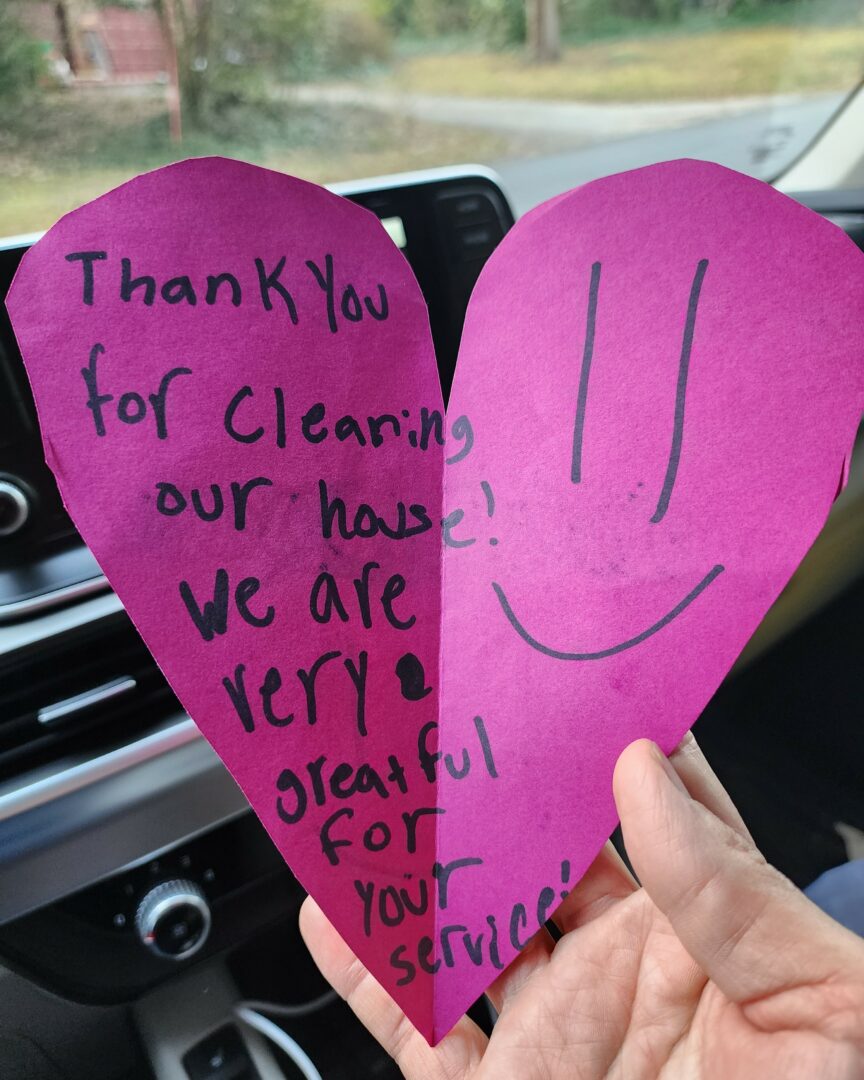 Thank You
for Cleaning
our house!
We are
very
greatful
for
your
service!